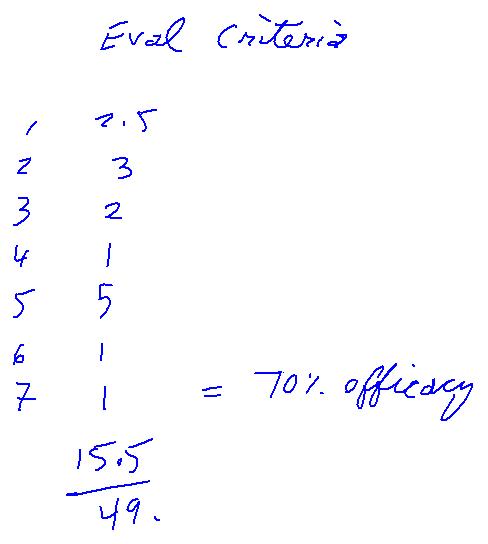 Eval Criteria
1 2.5
2 3
3 2
4 1
5 5
6 1
7 1 = 70% efficacy
15.5
49.